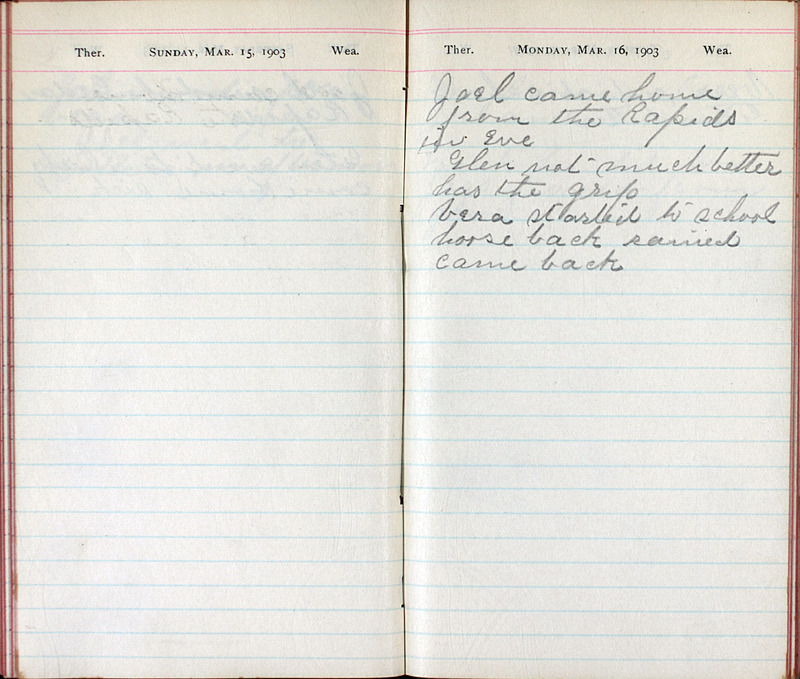 Ther. Sunday, Mar. 15, 1903 Wea.
Ther. Monday, Mar. 16, 1903 Wea.
Joel came home
from the Rapids
in Eve
Glen not much better
has the grip
vera started to school
horse back rained
came back